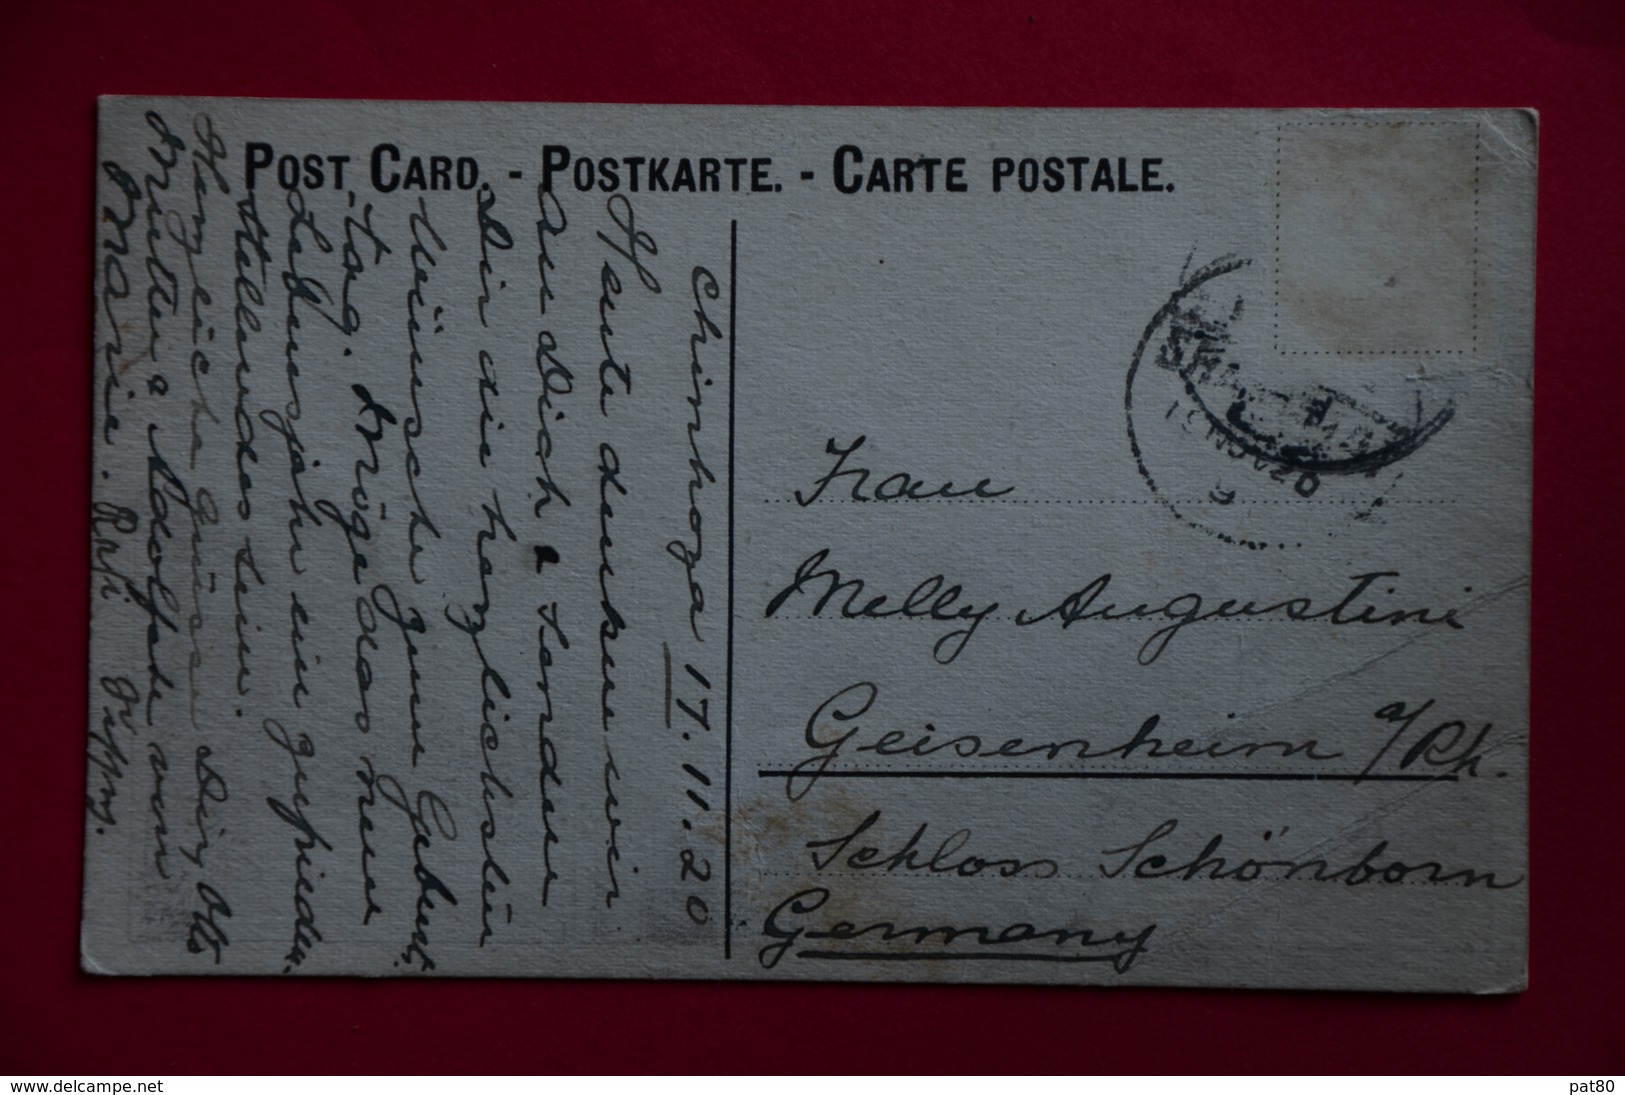 POST CARD. - POSTKARTE. - CARTE POSTALE.
Chinhoza 17. 11. 20
Heute denken wir
an Dich & senden
Dir die herzlichsten
Wünsche zum Geburts
-tag. Möge das neue
Lebensjahr ein zufrieden-
stellendes sein.
Herzliche Grüsse Dir, Otto
Mutter & Adolf von
Marie.
Frau
Melly Augustini
Geisenheim a/Rh.
Schloss Schönborn
Germany
19 NOV 20
www.delcampe.net
pat80